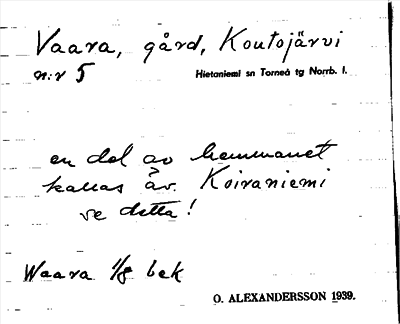 Vaara, gård, Koutojärvi
n:r 5 Hietaniemi sn Torneå tg Norrb. l.
en del av hemmanet
kallas äv. Koivaniemi
se detta!
Waara 1/8 bek
O. ALEXANDERSSON 1939.